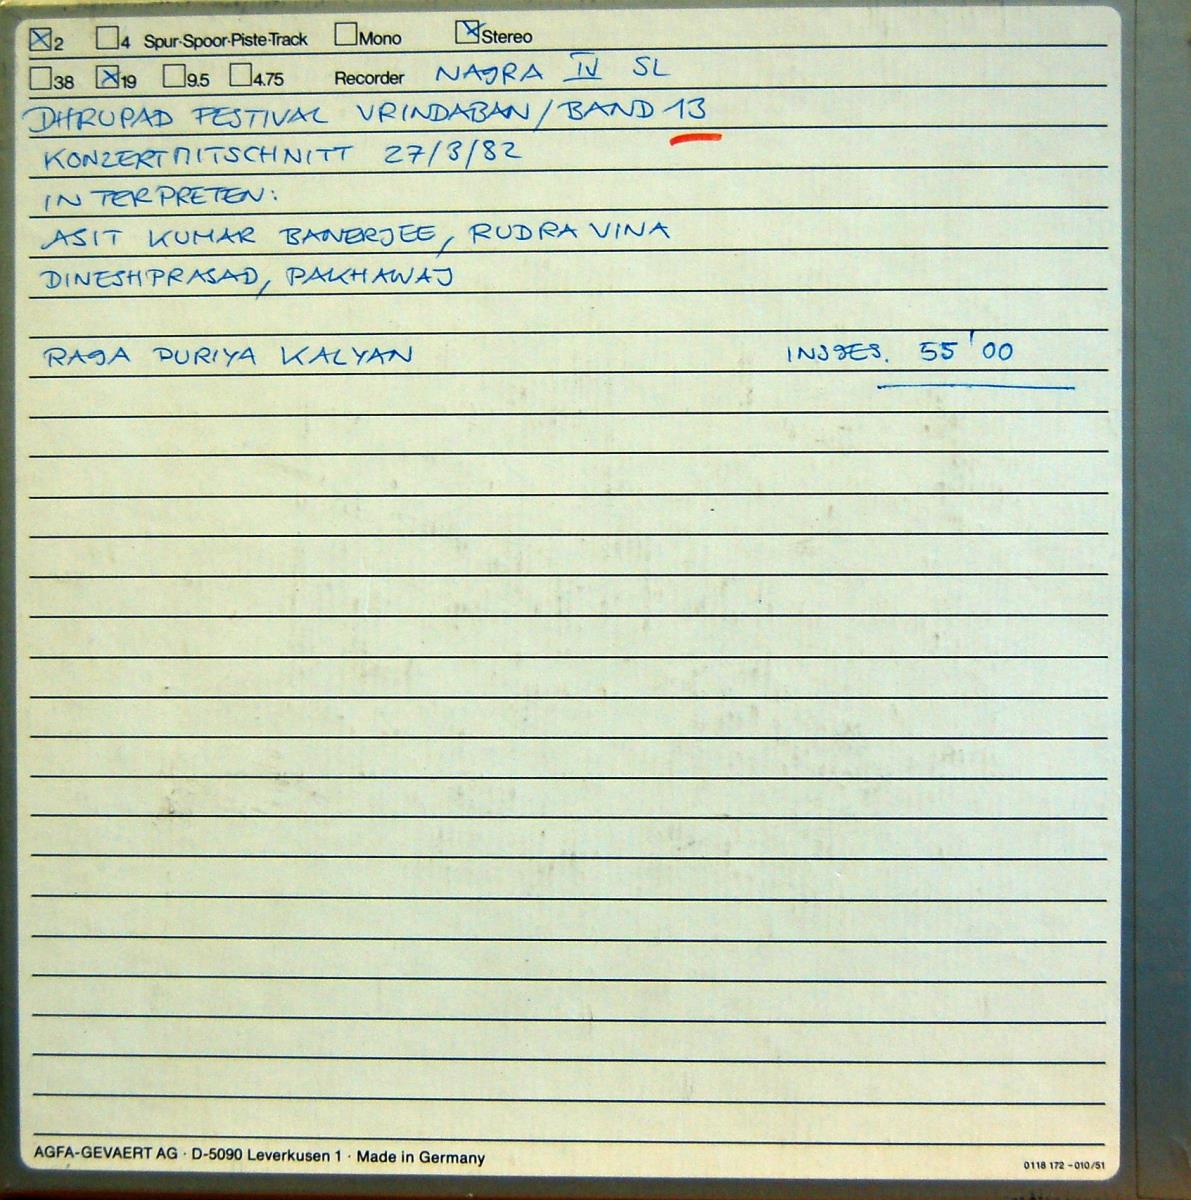 ☒2 ☐4 Spur·Spoor·Piste·Track ☐Mono ☒Stereo
☐38 ☒19 ☐9.5 ☐4.75 Recorder NAGRA IV SL
DHRUPAD FESTIVAL VRINDABAN / BAND 13
KONZERTMITSCHNITT 27/3/82
INTERPRETEN:
ASIT KUMAR BANERJEE, RUDRA VINA
DINESHPRASAD, PAKHAWAJ
RAGA PURIYA KALYAN INSGES. 55'00
AGFA-GEVAERT AG · D-5090 Leverkusen 1 · Made in Germany
0118 172 – 010/51